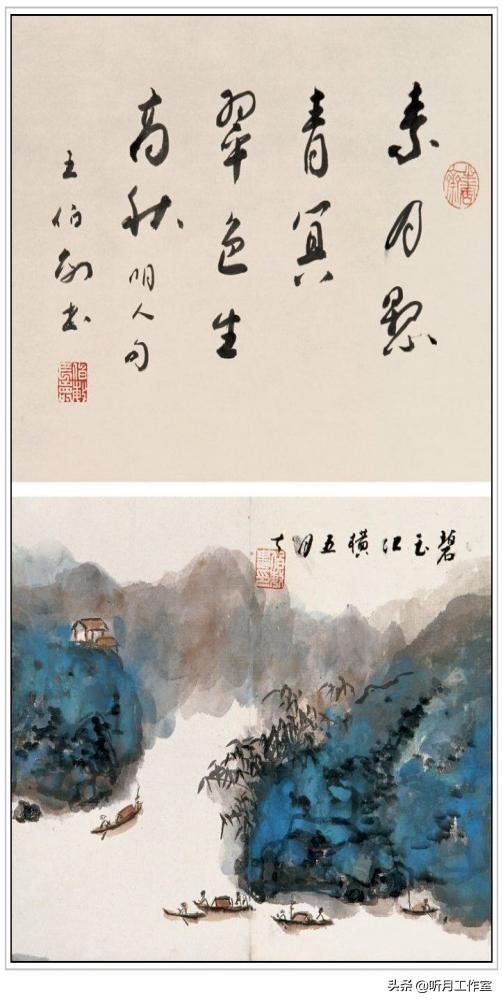 素月懸
青冥
翠色生
高秋 明人句
王伯敏书
碧玉江横五月
头条 @听月工作室